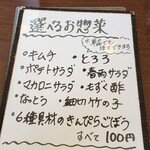 選べるお惣菜
・キムチ
・とろろ
・ポテトサラダ
・春雨サラダ
・マカロニサラダ
・もずく酢
・なっとう
・細切り竹の子
・6種具材のきんぴらごぼう
すべて100円